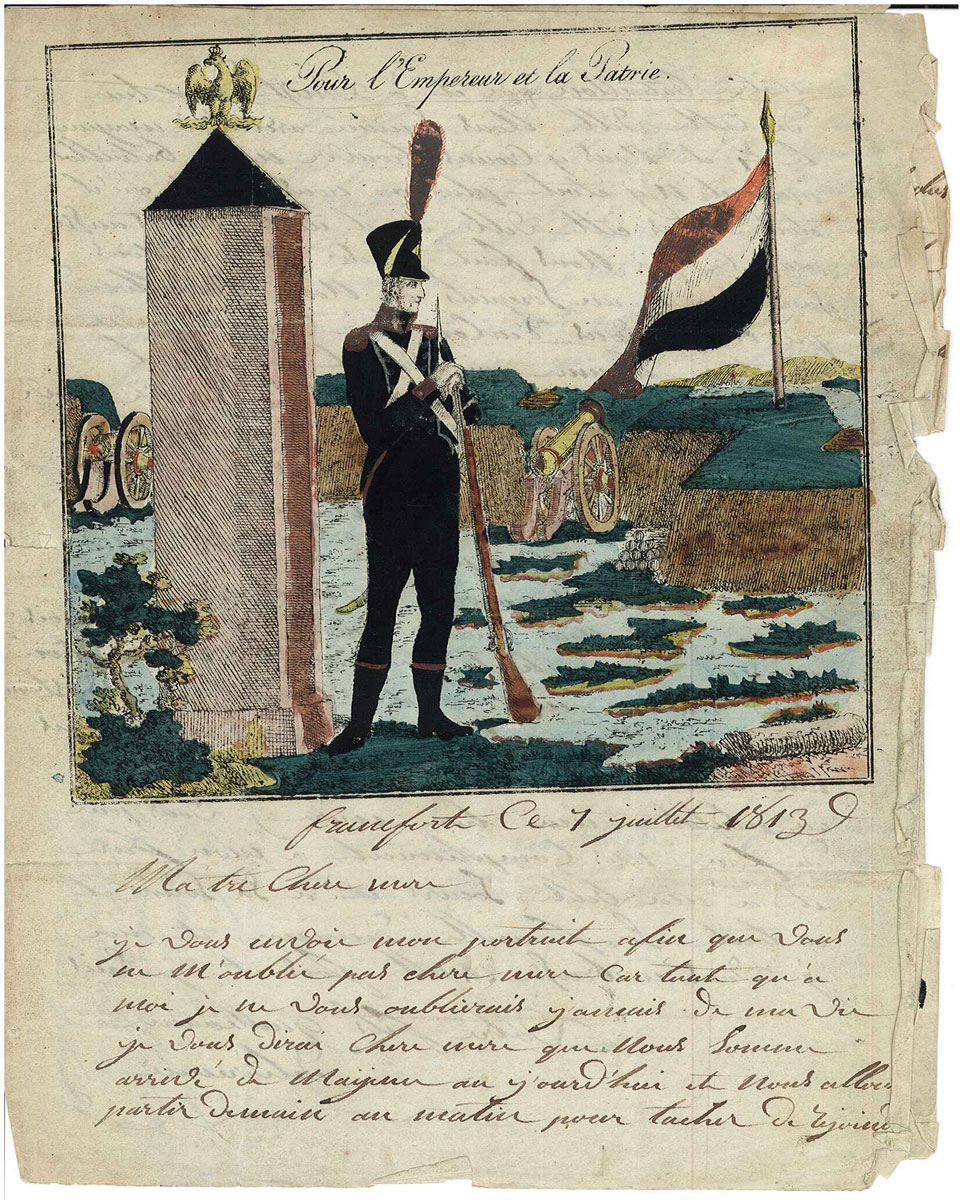 Pour l'Empereur et la Patrie.
francfort Ce 7 juillet 1813
Ma tre Chere mere
je vous envoie mon portrait afin que vous
ne m'oublié pas chere mere Car tant qu'a
moi je ne vous oublirais jamais de ma vie
je vous dirai Chere mere que Nous Somme
arrivé de Mayence au j'ourd'hui et Nous allon
partir Demain au matin pour tacher de rejoin